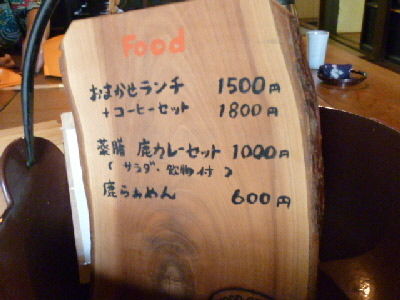 Food
おまかせランチ 1500円
+コーヒーセット 1800円
薬膳 鹿カレーセット 1000円
(サラダ、飲物付)
鹿らぁめん 600円